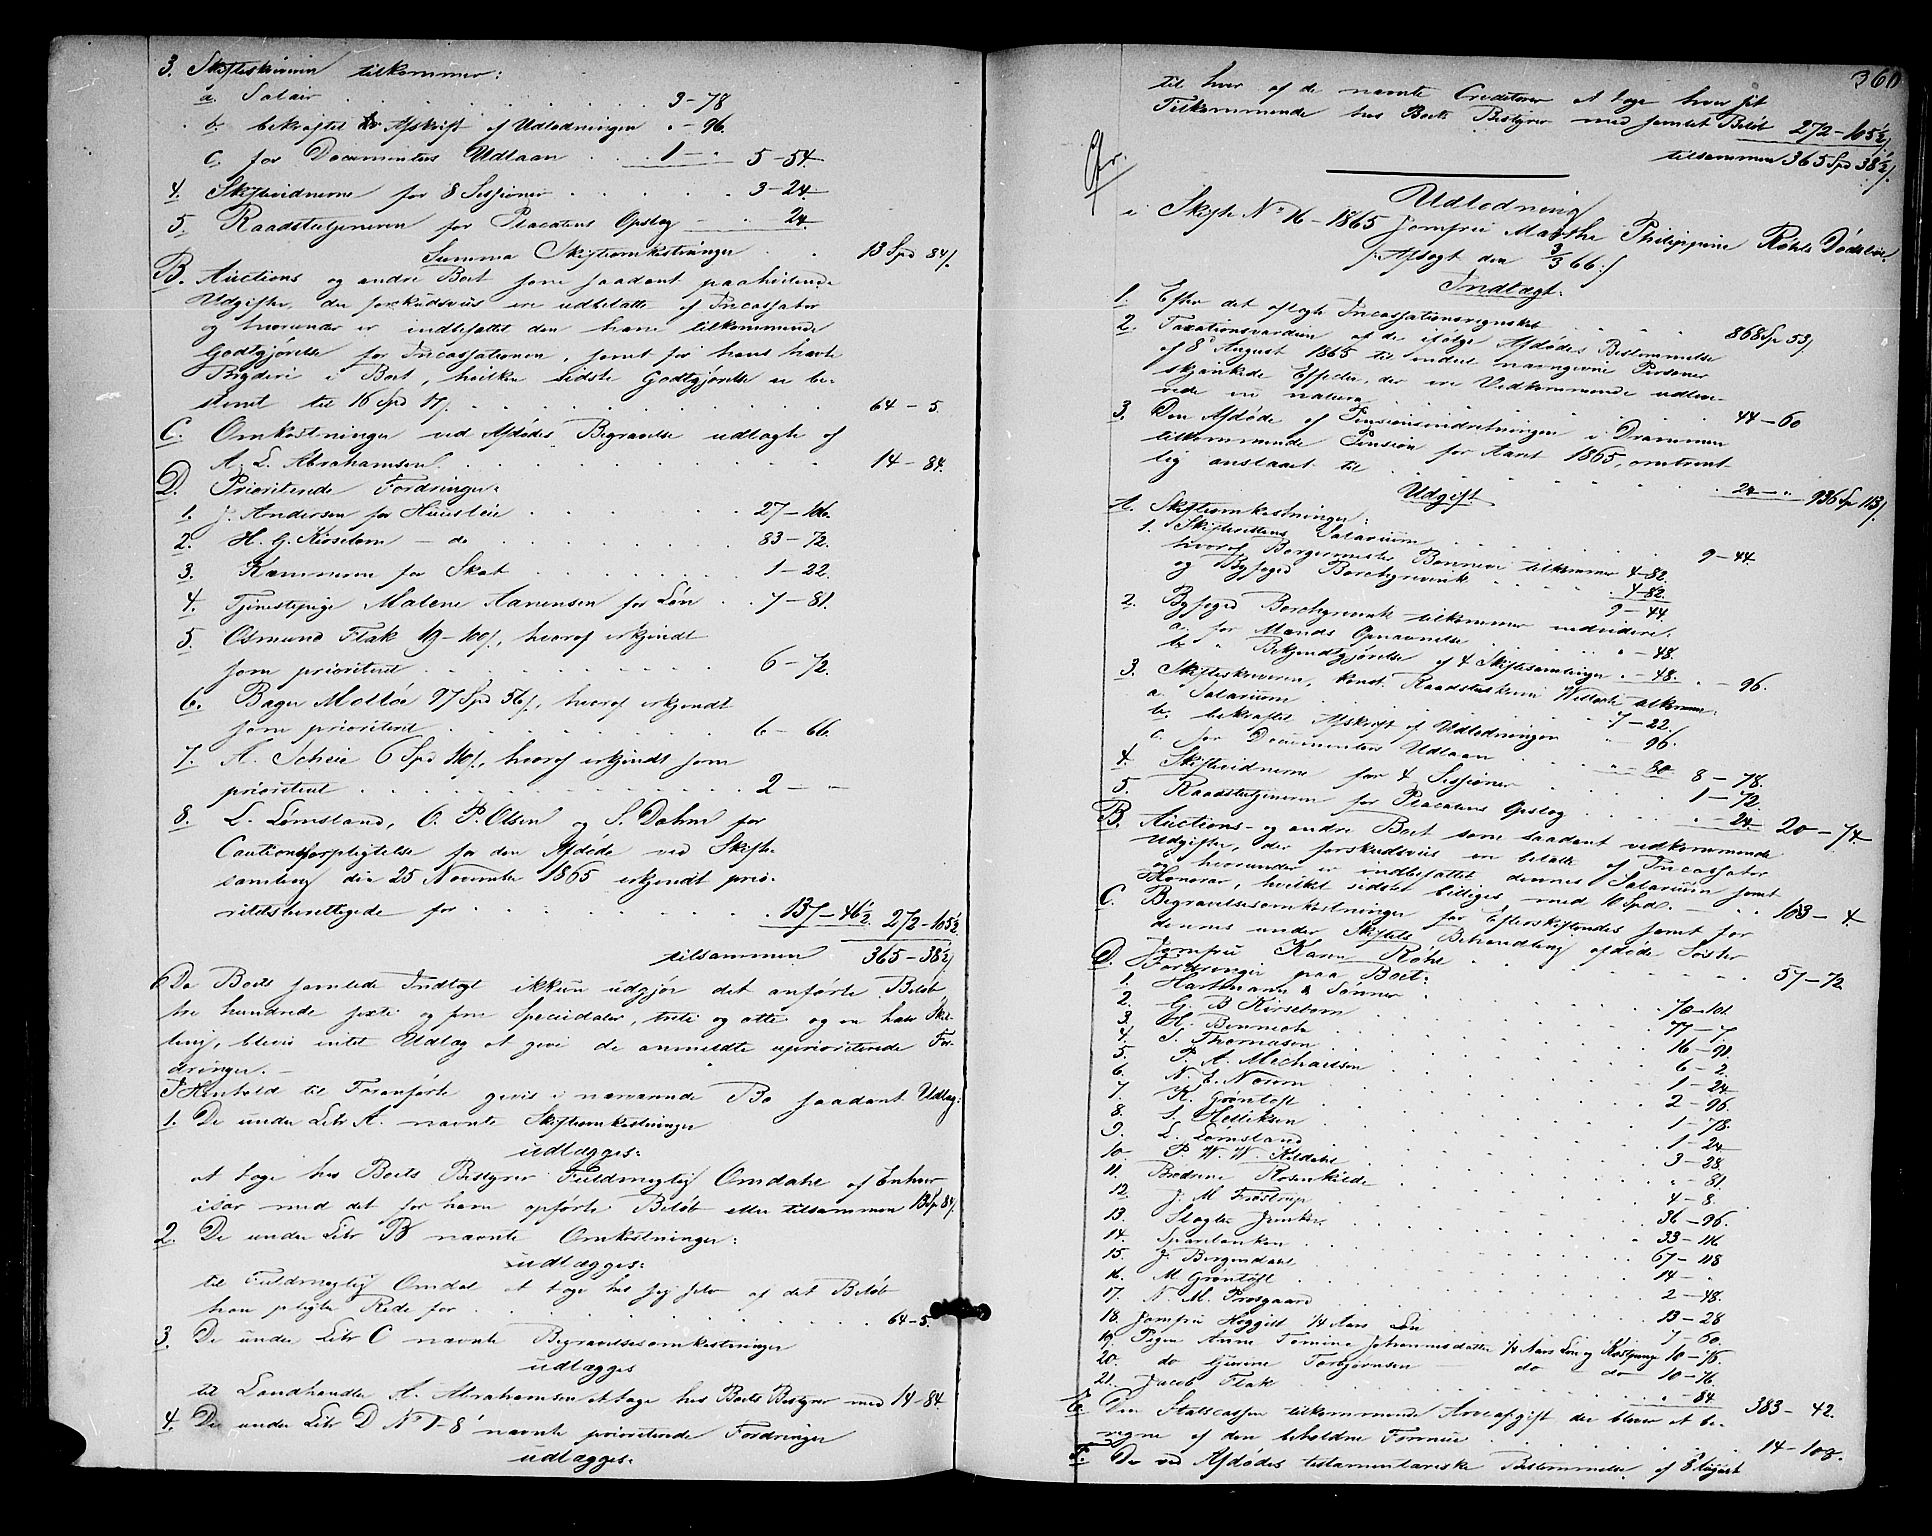 3. Skifteskriveren tilkommer:
a. Salair . . . 3-78
b. bekræftet Afskrift af Udlodningen " - 96.
c. for Documenters Udlaan . . . 1 - " 5-54.
4. Skiftevidnerne for 8 Sessioner . . . 3-24.
5. Raadstuetjeneren for Placatens Opslag — 24.
Summa Skifteomkostninger . . 13 Spd 84 /.
B. Auctions og andre Boet som saadant paahvilende
Udgifter, der forskudsviis ere udbetalte af Incassator
og hvorunder er indbefattet den ham tilkommende
Godtgjørelse for Incassationen, samt for hans havte
Bryderi i Boet, hvilken sidste Godtgjørelse er be-
stemt til 16 Spd 17 /. . . . 64-5.
C. Omkostninger ved Afdødes Begravelse udlagte af
A. L. Abrahamsen . . . 14-84.
D. Prioriterede Fordringer:
1. J. Andersen for Huusleie . . . 27-106.
2. H. G. Kirsebom — do . . . 83-72.
3. Kæmneren for Skat . . . 1-22.
4. Tjenestepige Malene Aanensen for Løn . . 7-81.
5. Osmund Flak 19-100 /., hvoraf erkjendt
som prioriteret . . . 6-72.
6. Bager Moltke 27 Spd 56 /., hvoraf erkjendt
som prioriteret . . . 6-66.
7. A. Scheie 6 Spd 110 /., hvoraf erkjendt som
prioriteret . . . 2 - "
8. L. Lømsland, O. P. Olsen og S. Dahm for
Cautionsforpligtelse for den Afdøde ved Skifte-
samling den 25 November 1865 erkjendt prio-
ritetsberettigede for . . . 137-46½. 272-105½.
tilsammen 365-38½ /.
Da Boets samlede Indtægt ikkun udgjør det anførte Beløb
tre hundrede sexti og fem Speciedaler, tretti og otte og en halv Skil-
ling, bliver intet Udlæg at give de anmeldte uprioriterede For-
dringer. —
I Henhold til Foranførte gives i nærværende Bo saadant Udlæg:
1. De under Litr A. nævnte Skifteomkostninger
udlægges:
at tage hos Boets Bestyrer Fuldmægtig Omdahl af Enhver
især med det for ham opførte Beløb eller tilsammen 13 Spd 84 /.
2. De under Litr B nævnte Omkostninger:
udlægges:
til Fuldmægtig Omdal at tage hos sig selv af det Beløb
han pligter Rede for . . . 64-5.
3. De under Litr C nævnte Begravelsesomkostninger
udlægges
til Landhandler A. Abrahamsen at tage hos Boets Bestyrer med 14-84.
4. De under Litr D No 1-8 nævnte prioriterede Fordringer
udlægges:
360
til hver af de nævnte Creditorer at tage hver sit
Tilkommende hos Boets Bestyrer med samlet Beløb 272-105½ /.
tilsammen 365 Spd 38½ /.
Udlodning
i Skifte No 16-1865 Jomfru Marthe Philippine Røhls Dødsbo.
/: Afsagt den 3/3 66 :/
Indtægt:
1. Efter det aflagte Incassationsregnskab . . . 868 Sp 53 /.
2. Taxationsværdien af de ifølge Afdødes Bestemmelse
af 8 August 1865 til endeel navngivne Personer
skjænkede Effecter, der ere Vedkommende udleve-
rede in natura . . . 44-60
3. Den Afdøde af Pensionsindretningen i Drammen
tilkommende Pension for Aaret 1865, omtrent-
lig anslaaet til . . . 24 - " 936 Sp 113 /.
Udgift
A. Skifteomkostninger:
1. Skifterettens Salarium . . . 9-44.
hvoraf Borgermester Bonnevie tilkommer 4-82.
og Byfoged Borchgrevink . . 4-82.
9-44.
2. Byfoged Borchgrevink tilkommer endvidere:
a. for Mænds Opnævnelse . . " - 48.
b. " Bekjendtgjørelse af 4 Skiftesamlinger " - 48. " - 96.
3. Skifteskriveren, const. Raadstueskriver tilkommer:
a. Salarium . . . 7-22.
b. bekræftet Afskrift af Udlodningen " 96.
c. for Documenters Udlaan . . . " - 80 8-78.
4. Skiftevidnerne for 4 Sessioner . . . 1-72.
5. Raadstuetjeneren for Placatens Opslag . . . " - 24. 20-74.
B. Auctions- og andre Boet som saadant vedkommende
Udgifter, der forskudsviis ere betalte af Incassator
og hvorunder er indbefattet dennes Salarium samt
Honorar, hvilket sidste billiges med 10 Spd. . . 103-4.
C. Begravelsesomkostninger for Efterskiftendes samt for
dennes under Skiftets Behandling afdøde Søster
Jomfru Karen Røhl . . . 57-72.
D. Fordringer paa Boet:
1. Hartmann & Sønner . . . 70-101.
2. G. B. Kirsebom . . . 77-7.
3. H. Bennecke . . . 16-91.
4. S. Thomasen . . . 6-2.
5. P. A. Mechaelsen . . . 1-24.
6. N. E. Norum . . . 2-96.
7. K. Grøntoft . . . 1-78.
8. S. Helliksen . . . 1-24
9. L. Lømsland . . . 3-28.
10. P. W. W. Kildahl . . . " - 81.
11. Brødrene Rosenkilde . . . 4-8.
12. J. M. Frøstrup . . . 36-96.
13. Slagter Junker . . . 33-116
14. Sparebanken . . . 67-118
15. J. Bergendahl . . . 14 - "
16. M Grøntoft . . . 2-48.
17. N. M. Prosgaard . . . 13-28
18. Jomfru Heggist ¼ Aars Løn 7-60.
19. Pigen Anne Tomine Johannesdatter ¼ Aars Løn og Kostpenge 10-76.
20. do Gjurine Torbjørnsen do do 10-76.
21. Jacob Flak . . . " - 84. 383-42.
E. Den Statscassen tilkommende Arveafgift der bliver at be-
regne af den beholdne Formue . . . 14-108.
F. De ved Afdødes testamentariske Bestemmelse af 8 August